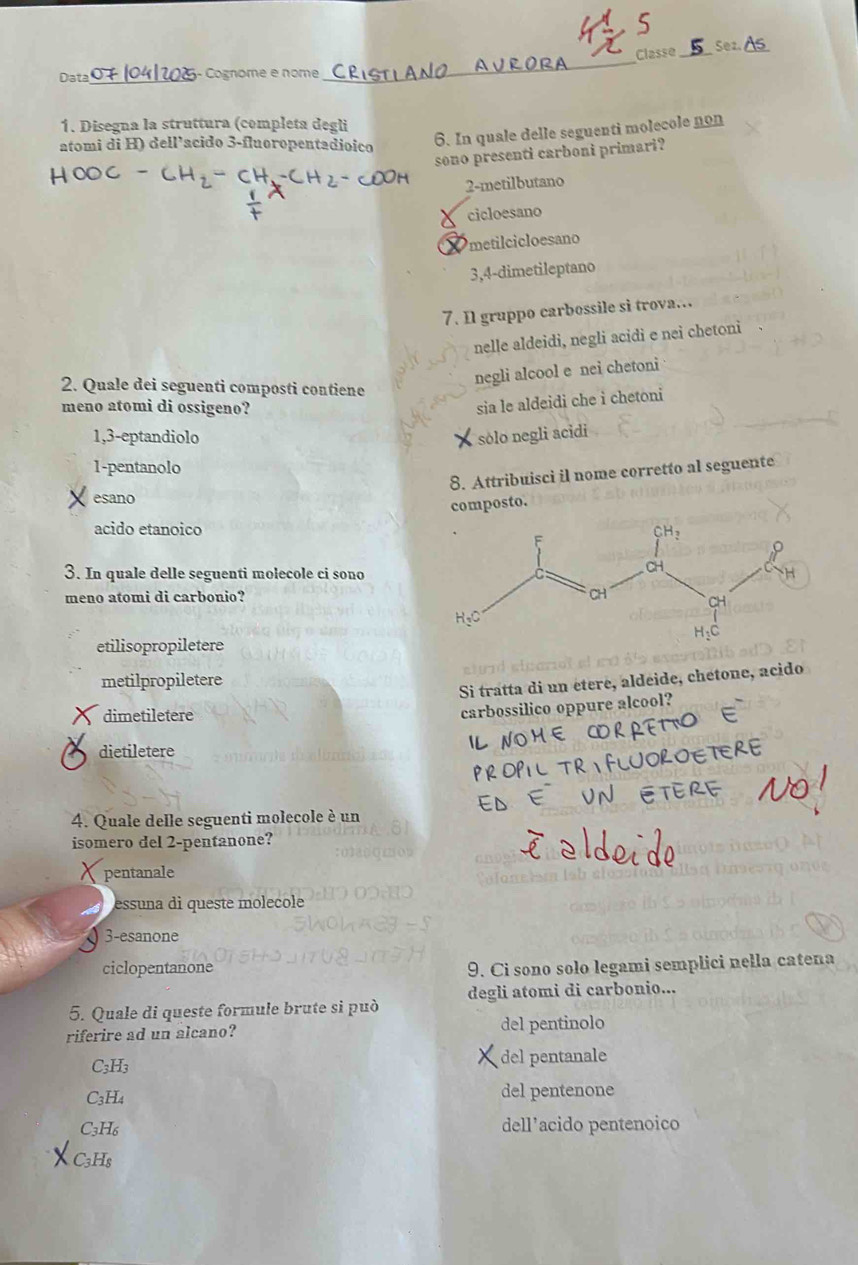 4 1/2 5
Data 07/04/2025 - Cognome e nome CRISTIANO AURORA Classe 5 Sez. AS
1. Disegna la struttura (completa degli
atomi di H) dell'acido 3-fluoropentadioico
HOOC - CH2 - CH2 - CH2 - COOH
F
2. Quale dei seguenti composti contiene
meno atomi di ossigeno?
1,3-eptandiolo
1-pentanolo
X esano
acido etanoico
3. In quale delle seguenti molecole ci sono
meno atomi di carbonio?
etilisopropiletere
metilpropiletere
X dimetiletere
X dietiletere
4. Quale delle seguenti molecole è un
isomero del 2-pentanone?
X pentanale
essuna di queste molecole
3-esanone
ciclopentanone
5. Quale di queste formule brute si può
riferire ad un alcano?
C3H3
C3H4
C3H6
X C3H8
6. In quale delle seguenti molecole non
sono presenti carboni primari?
2-metilbutano
X cicloesano
X metilcicloesano
3,4-dimetileptano
7. Il gruppo carbossile si trova...
nelle aldeidi, negli acidi e nei chetoni
negli alcool e nei chetoni
sia le aldeidi che i chetoni
X solo negli acidi
8. Attribuisci il nome corretto al seguente
composto.
F CH3 O
C CH C H
CH CH
H3C
H3C
Si tratta di un etere, aldeide, chetone, acido
carbossilico oppure alcool?
IL NOME CORRETTO E'
PROPIL TRIFLUOROETERE
ED E' UN ETERE NO!
è aldeide
9. Ci sono solo legami semplici nella catena
degli atomi di carbonio...
del pentinolo
X del pentanale
del pentenone
dell'acido pentenoico